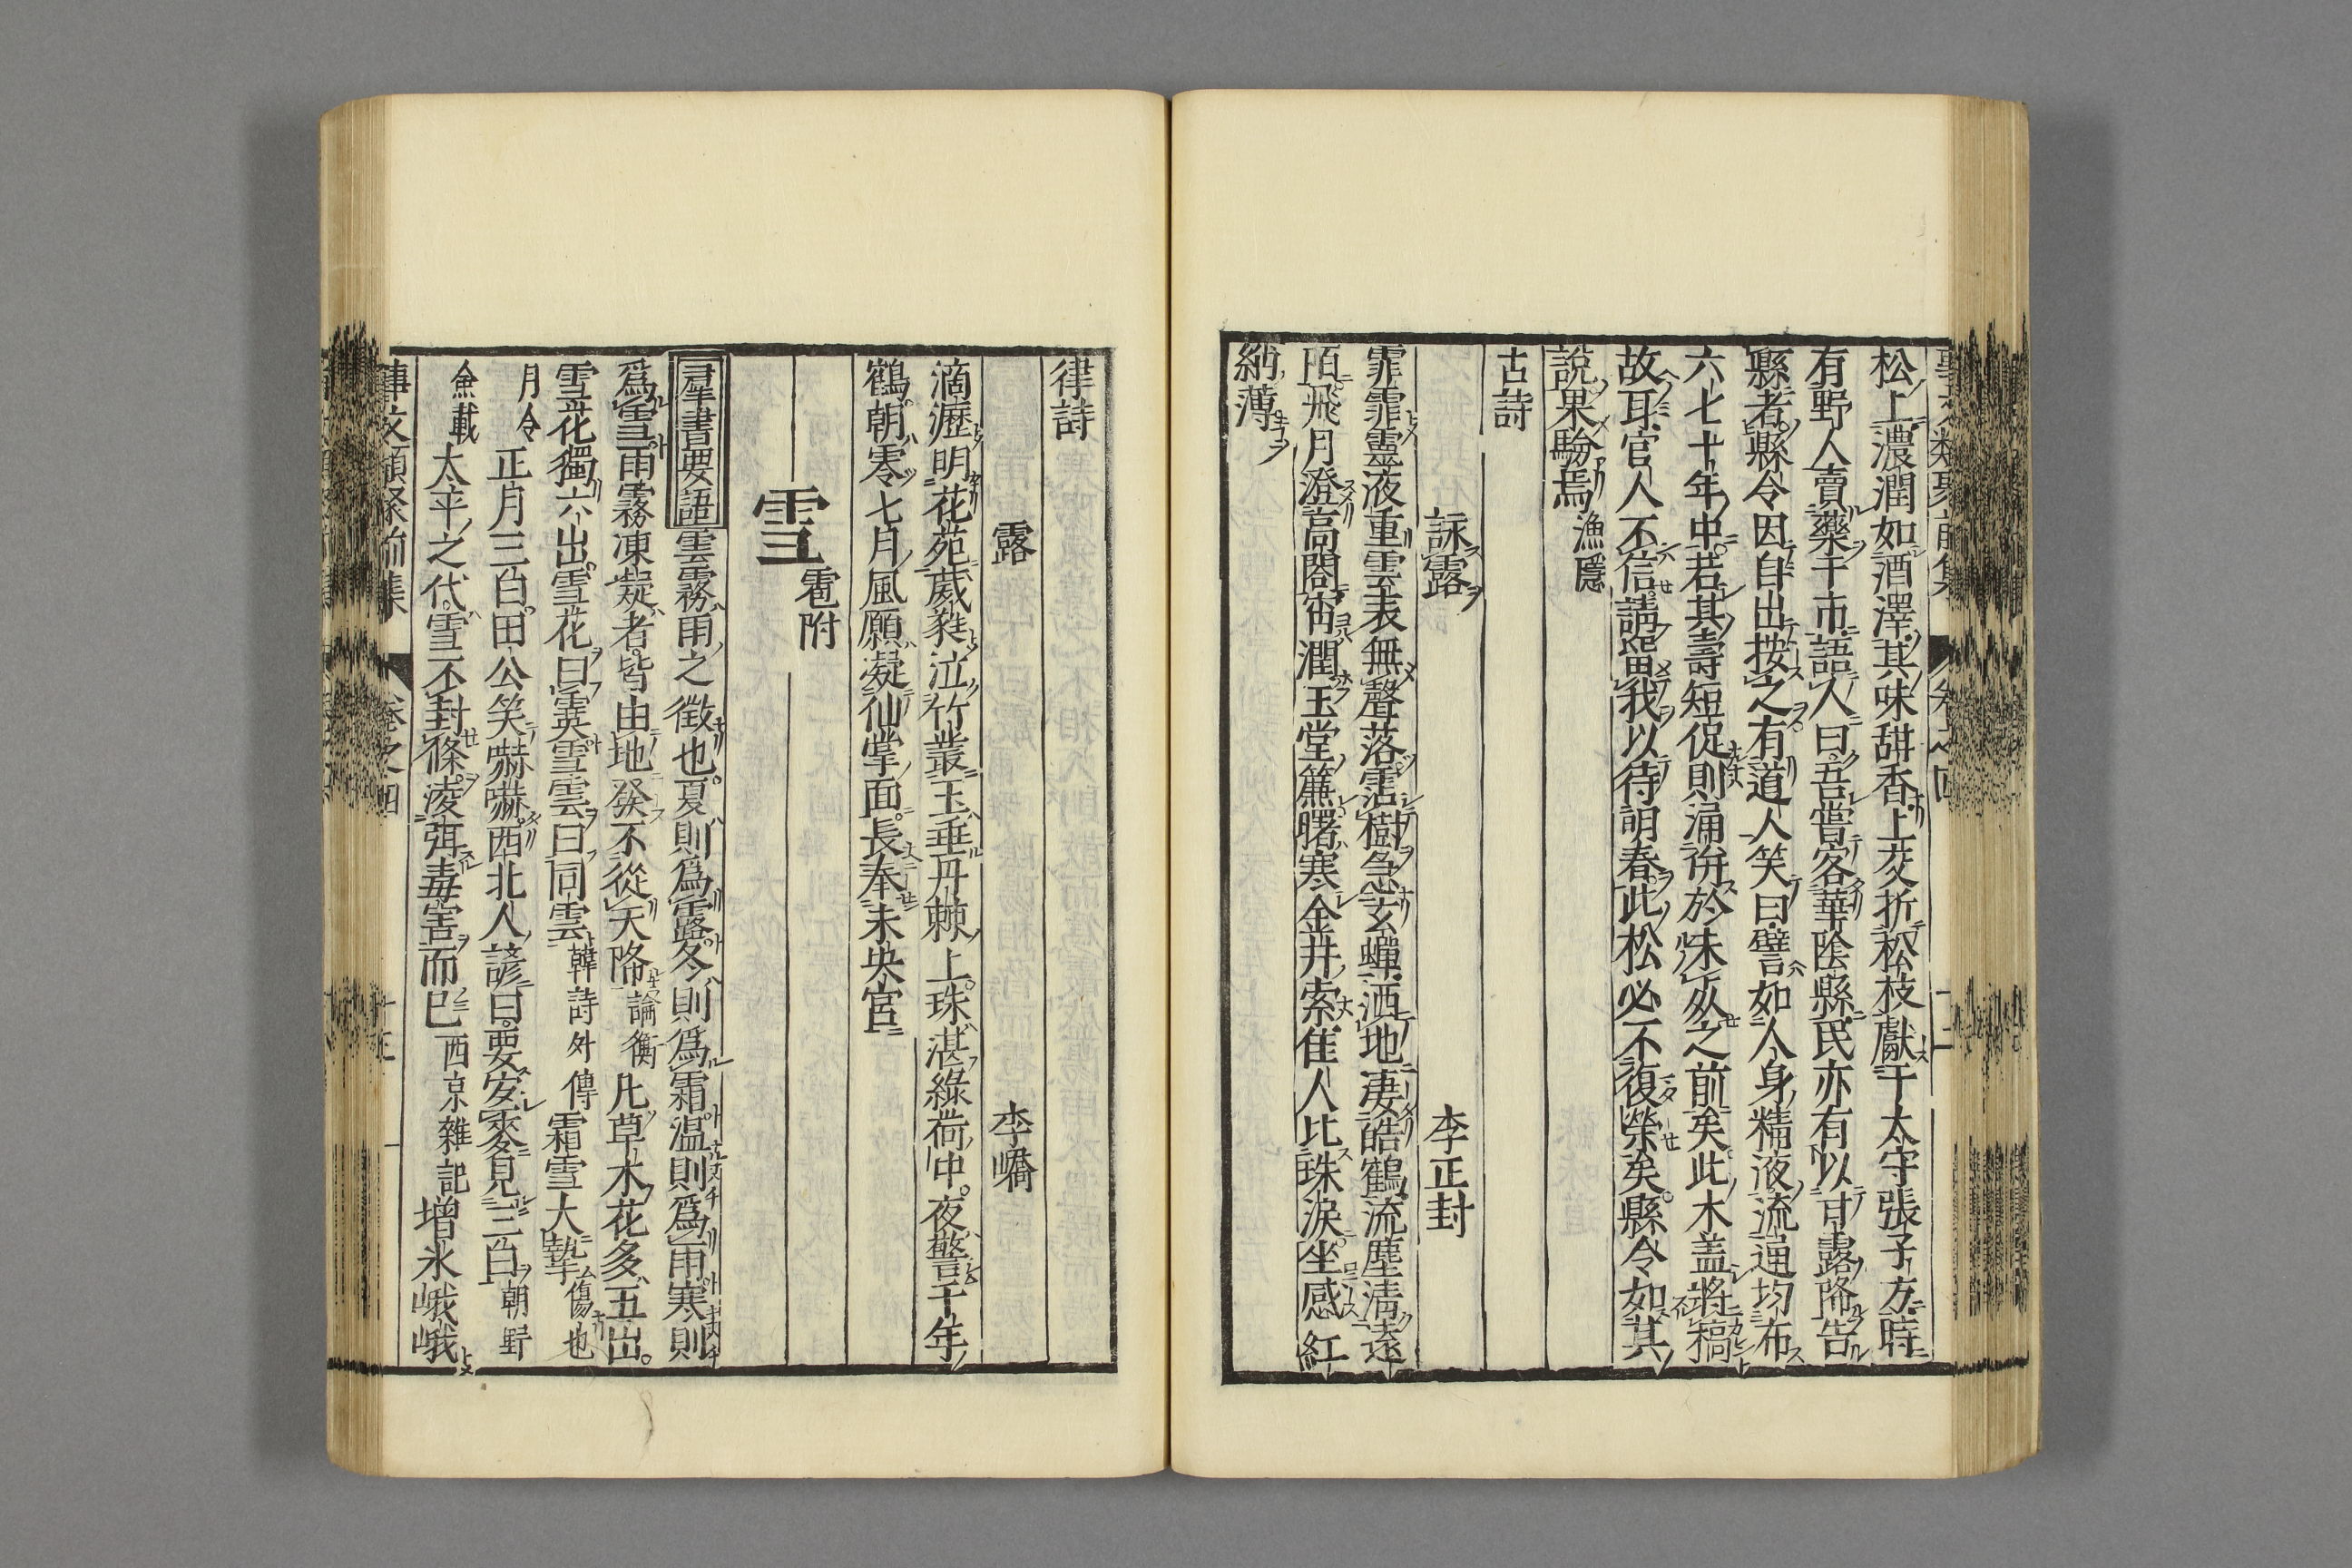 松上濃潤如酒澤其味甜香上交折松枝獻于太守張子方時
有野人賣藥于市語人曰吾嘗客華陰縣民亦有以甘露降告
縣者縣令因自出按之有道人笑曰譬如人身精液流通均布
六七十年中若其壽短促則涌併於未死之前矣此木盖將稿
故耳官人不信請留我以待明春此松必不復榮矣縣令如其
說果驗焉漁隱
古詩
詠露 李正封
霏霏靈液重雲表無聲落霑樹急玄蟬洒地凄皓鶴流塵清遠
陌飛月澄高閣宵潤玉堂簾曙寒金井索佳人比珠淚坐感紅
綃薄
律詩
露 李嶠
滴瀝明花苑葳蕤泣竹叢玉垂丹棘上珠湛綠荷中夜警千年
鶴朝零七月風願凝仙掌面長奉未央宮
雪 雹附
羣書要語 雲霧雨之徵也夏則爲露冬則爲霜温則爲雨寒則
爲雪雨霧凍凝者皆由地發不從天降論衡凡草木花多五出
雪花獨六出雪花曰霙雪雲曰同雲韓詩外傳霜雪大摯傷也
月令正月三白田公笑嚇嚇西北人諺曰要宜麥見三白朝野
僉載太平之代雪不封條凌弭毒害而已西京雜記增氷峨峨
事文類聚前集 卷之四